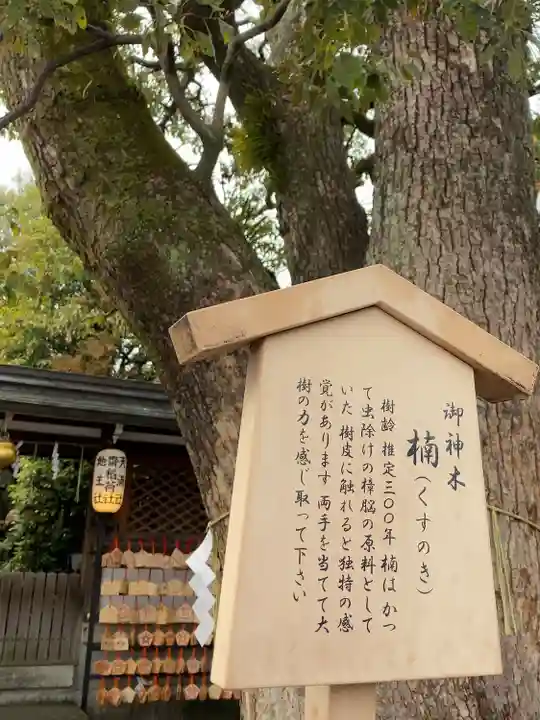 御神木
楠(くすのき)
樹齢推定三〇〇年 楠はかつ
て虫除けの樟脳の原料として
いた 樹皮に触れると独特の感
覚があります 両手を当てて大
樹の力を感じ取って下さい